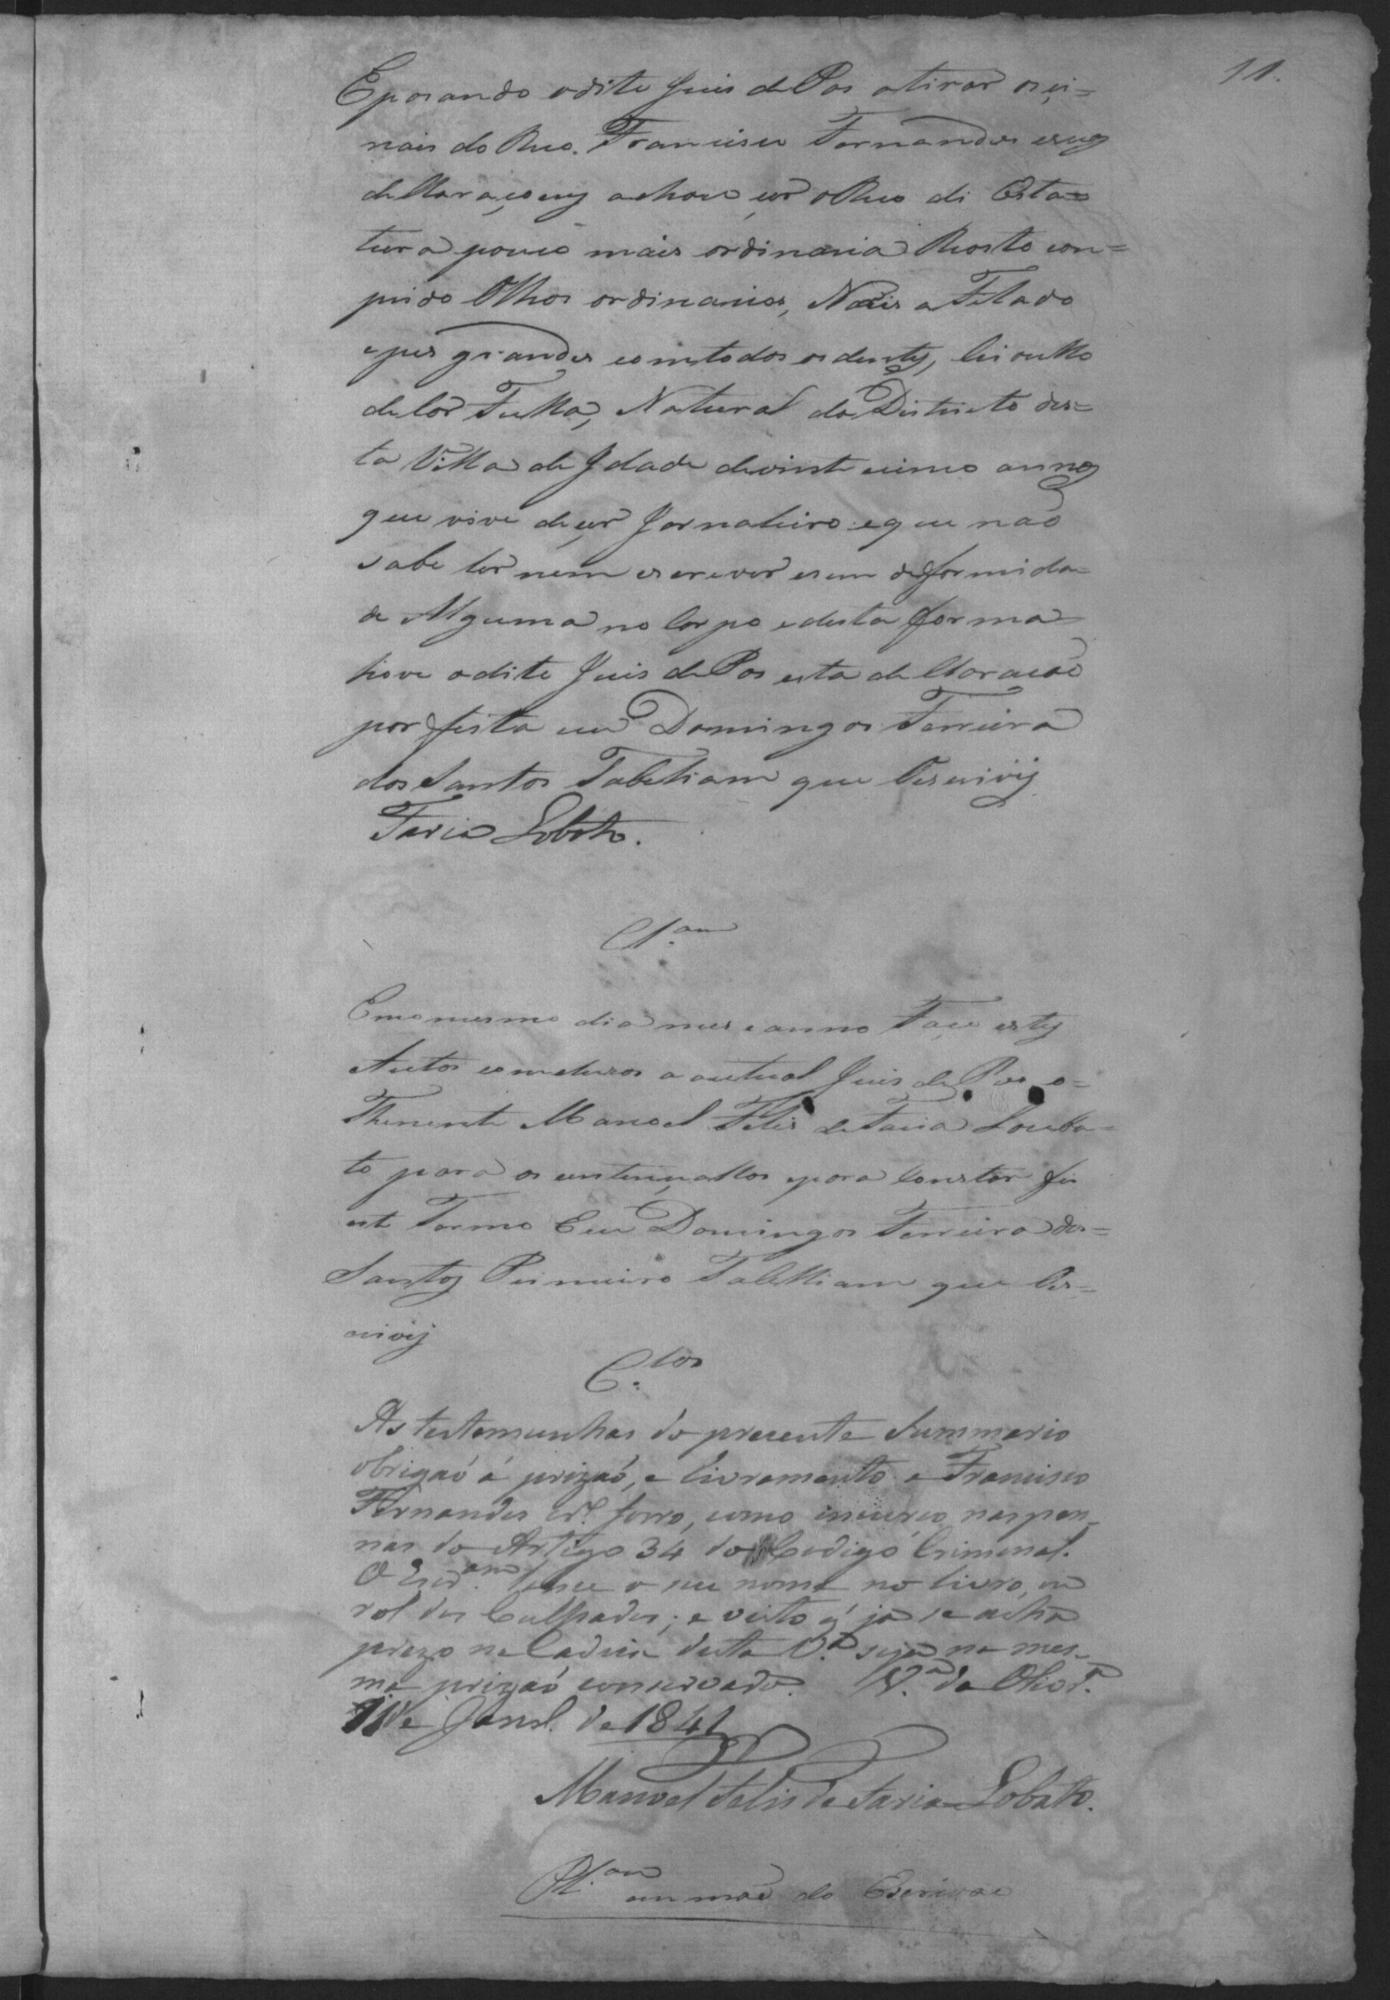 11.
E pasando o dito Juis de Pas a tirar os ci=
nais do Reo. Francisco Fernandes
achou ser o Reo di Esta=
tura pouco mais ordinaria Rosto con=
prido Olhos ordinarios, Naris a Filado
e pes grandes com todos os dentes,
de Cor Fulla, Natural do Districto des=
ta Villa de Idade de vinte cinco annos
que vive de ser Jornaleiro e que não
sabe ler nem escrever e sem deformida=
de Alguma no Corpo e desta forma
hove o dito Juis de Pas esta declaração
por feita eu Domingos Ferreira
dos Santos Tabeliam que Escrivij
Faria Lobato.
Cl.am
E no mesmo dia mes e anno Faço estes
Autos concluzos a actual Juis de Pas o=
Thenente Manoel Felis de Faria Louba=
to para os e para Constar fis
este Termo Eu Domingos Ferreira dos=
Santos Primeiro Tabelliam que Es=
crivij
C.los
As testemunhas do prezente Summario
obrigaõ á prizaõ, e livramento a Francisco
Fernandes cr.º forro, como incurso nas pen=
nas do Artigo 34 do Codigo Criminal.
O Escr.am lance o seu nome no livro, ou
rol dos Culpados; e visto q' já se acha
prezo na Cadeia desta V.ª seja na mes=
ma prizaõ conservado. V.ª de Olivr.ª
11 de Janr.º de 1841
Manoel Felis de Faria Lobato.
em mão do Escrivão